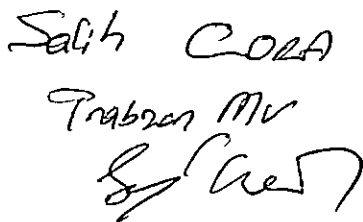 Salih CORA
Trabzon MV